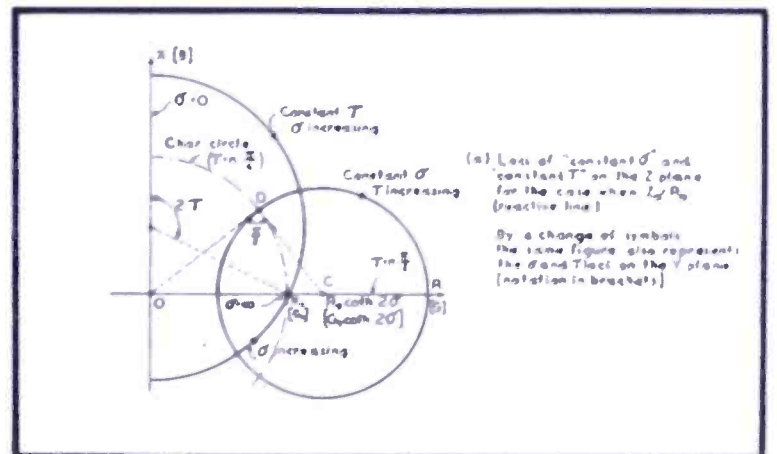 X [B]
σ=0
Constant T
σ increasing
Char circle
Constant σ
T increasing
D
2T
O
σ=∞
C
R
R₀ coth 2σ
[G₀ coth 2σ]
[G₀]
[G]
σ increasing
(a) Loci of "constant σ" and
"constant T" on the Z plane
for the case when
(reactive line)
By a change of symbols
the same figure also represents
the σ and T loci on the Y plane
(notation in brackets)